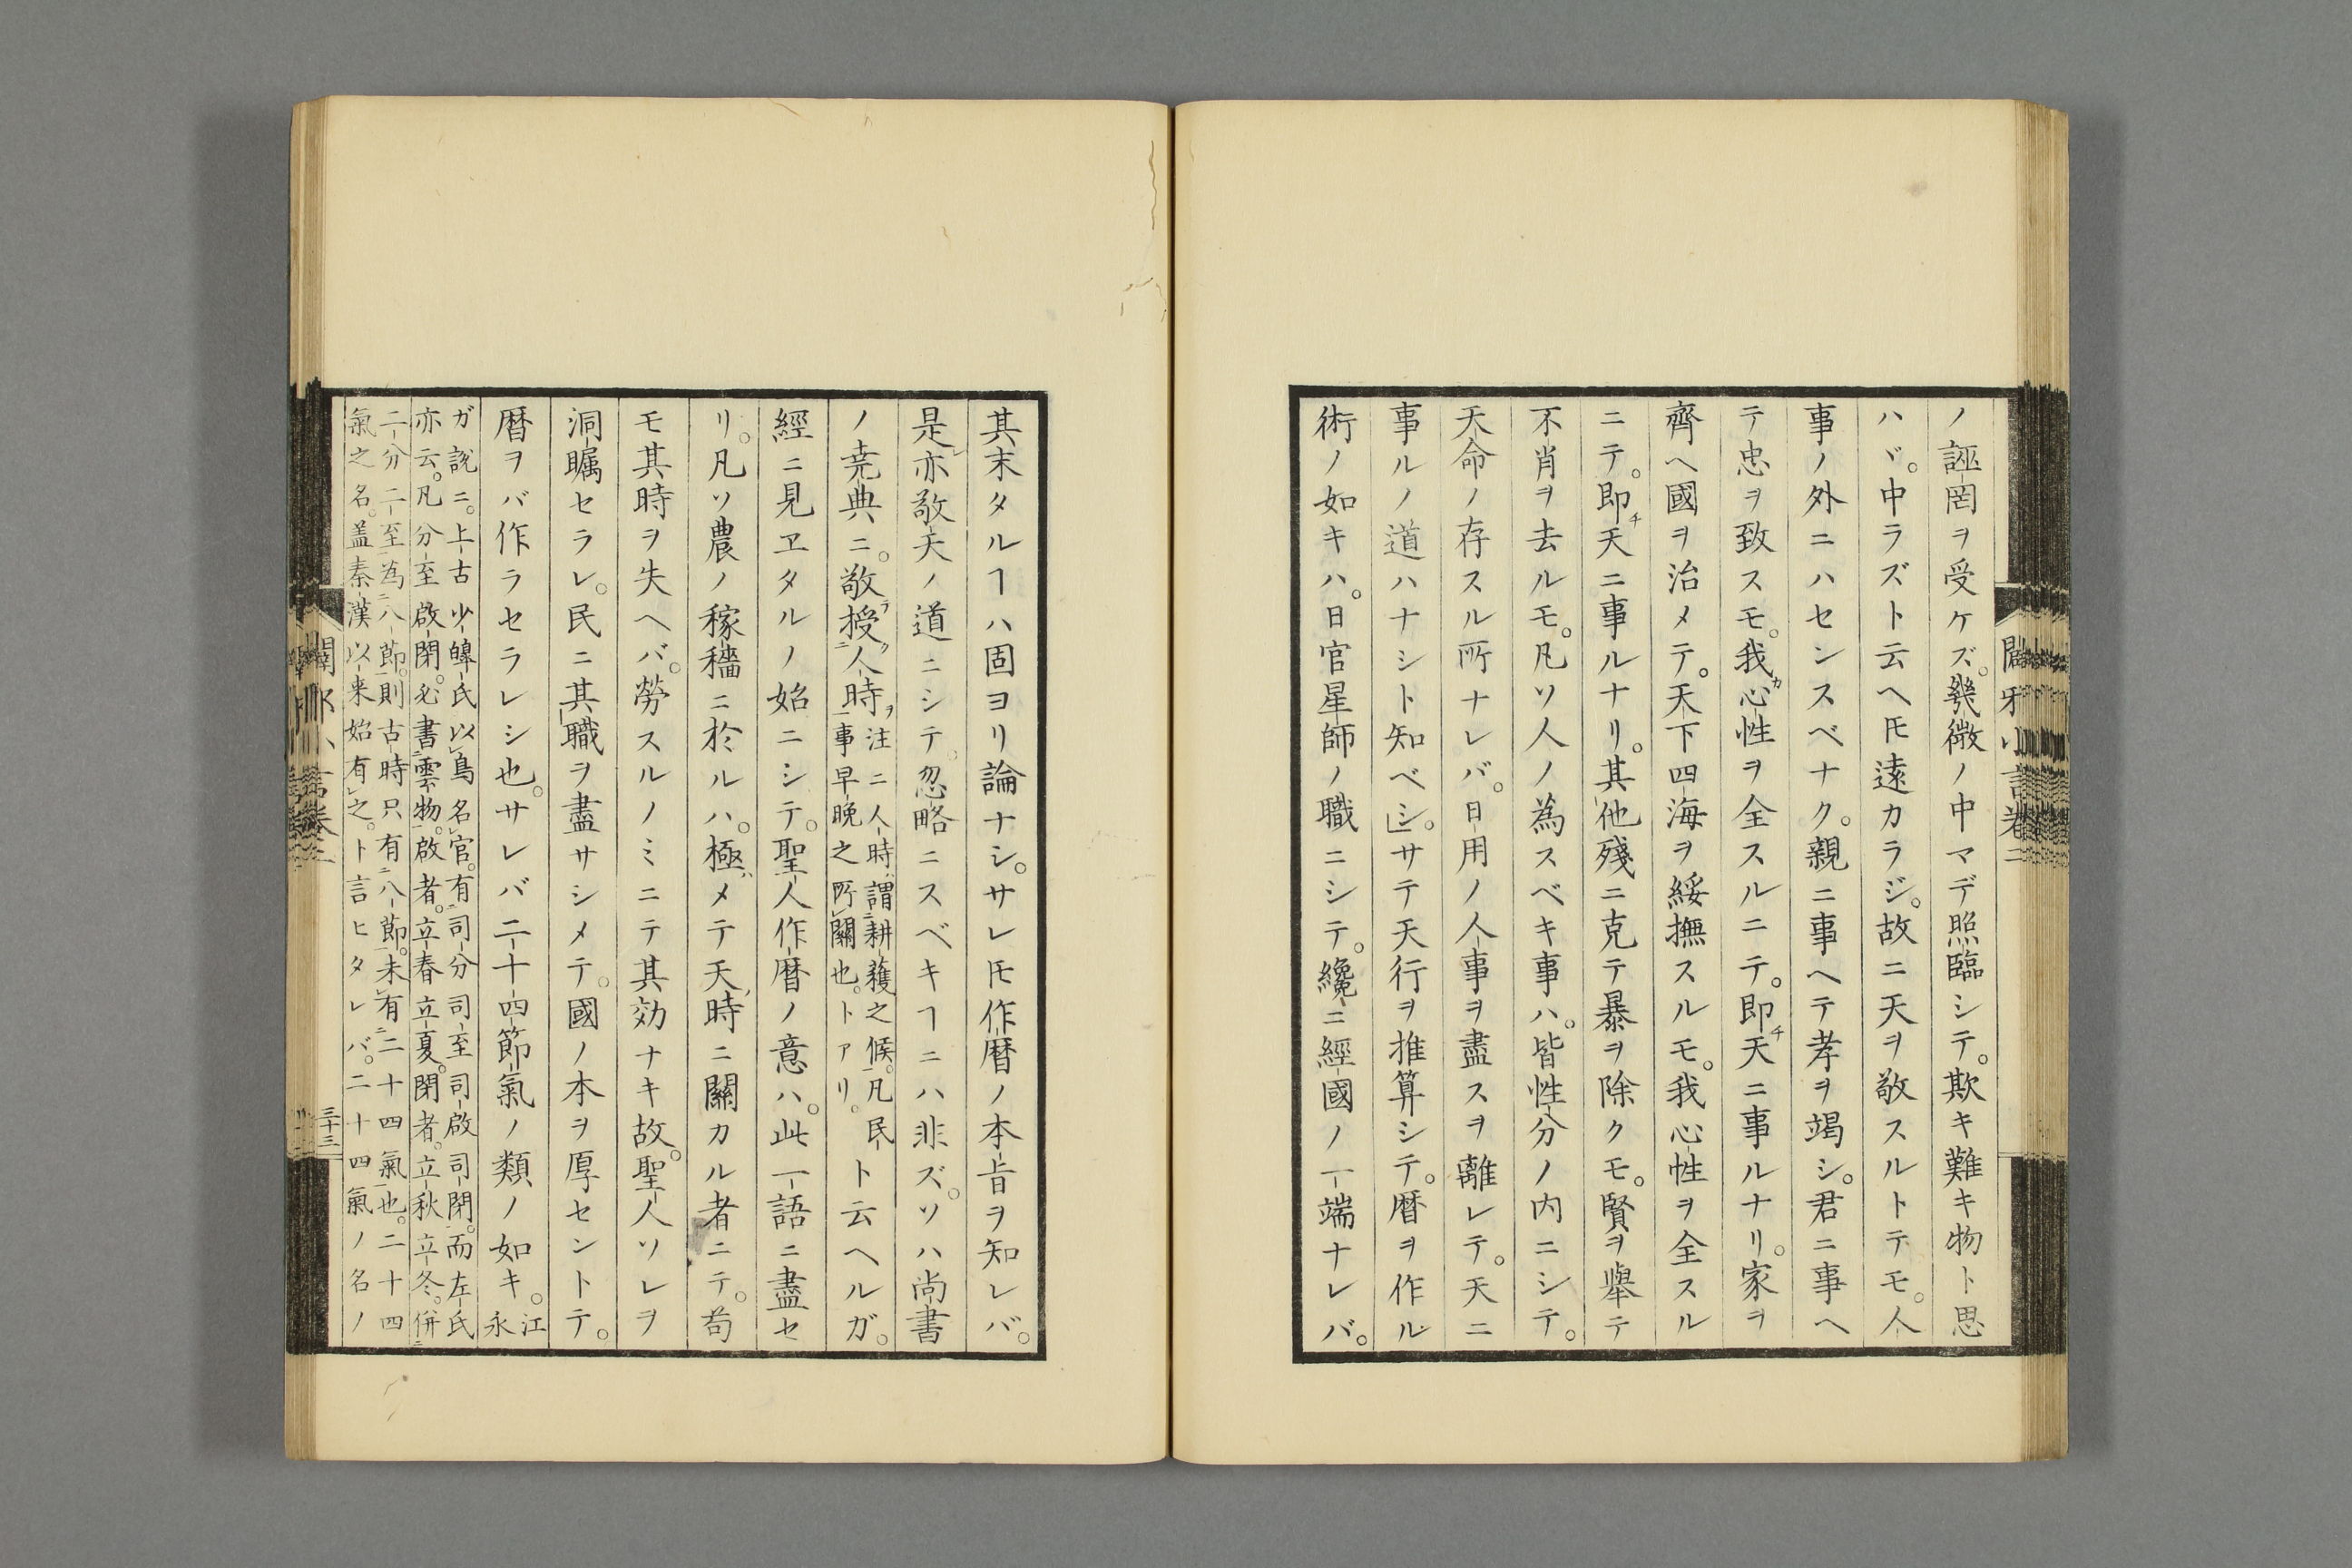 ノ誣罔ヲ受ケズ。幾微ノ中マデ照臨シテ。欺キ難キ物ト思
ハヾ。中ラズト云ヘ𪜈遠カラジ。故ニ天ヲ敬スルトテモ。人
事ノ外ニハセンスベナク。親ニ事ヘテ孝ヲ竭シ。君ニ事ヘ
テ忠ヲ致スモ。我カ心性ヲ全スルニテ。即チ天ニ事ルナリ。家ヲ
齊ヘ國ヲ治メテ。天下四海ヲ綏撫スルモ。我心性ヲ全スル
ニテ。即チ天ニ事ルナリ。其他殘ニ克テ暴ヲ除クモ。賢ヲ舉テ
不肖ヲ去ルモ。凡ソ人ノ為スベキ事ハ。皆性分ノ内ニシテ。
天命ノ存スル所ナレバ。日用ノ人事ヲ盡スヲ離レテ。天ニ
事ルノ道ハナシト知ベシ」。サテ天行ヲ推算シテ。暦ヲ作ル
術ノ如キハ。日官星師ノ職ニシテ。纔ニ經國ノ一端ナレバ。
闢邪小言卷二
其末タルヿハ固ヨリ論ナシ。サレ𪜈作暦ノ本旨ヲ知レバ。
是レ亦敬天ノ道ニシテ。忽略ニスベキヿニハ非ズ。ソハ尚書
ノ堯典ニ。敬授人時注ニ人時謂耕穫之候。凡民
事早晩之所關也。トアリ。ト云ヘルガ。
經ニ見ヱタルノ始ニシテ。聖人作暦ノ意ハ。此一語ニ盡セ
リ。凡ソ農ノ稼穡ニ於ルハ。極メテ天時ニ關カル者ニテ。苟
モ其時ヲ失ヘバ。勞スルノミニテ其効ナキ故。聖人ソレヲ
洞矚セラレ。民ニ其職ヲ盡サシメテ。國ノ本ヲ厚セントテ。
暦ヲバ作ラセラレシ也。サレバ二十四節氣ノ類ノ如キ。江
永
ガ說ニ。上古少皞氏以鳥名官。有司分司至司啟司閉。而左氏
亦云。凡分至啟閉。必書雲物。啟者。立春立夏。閉者。立秋立冬。併
二分二至為八節。則古時只有八節。未有二十四氣也。二十四
氣之名。盖秦漢以来始有之。ト言ヒタレバ。二十四氣ノ名ノ
闢邪小言卷二
三十三